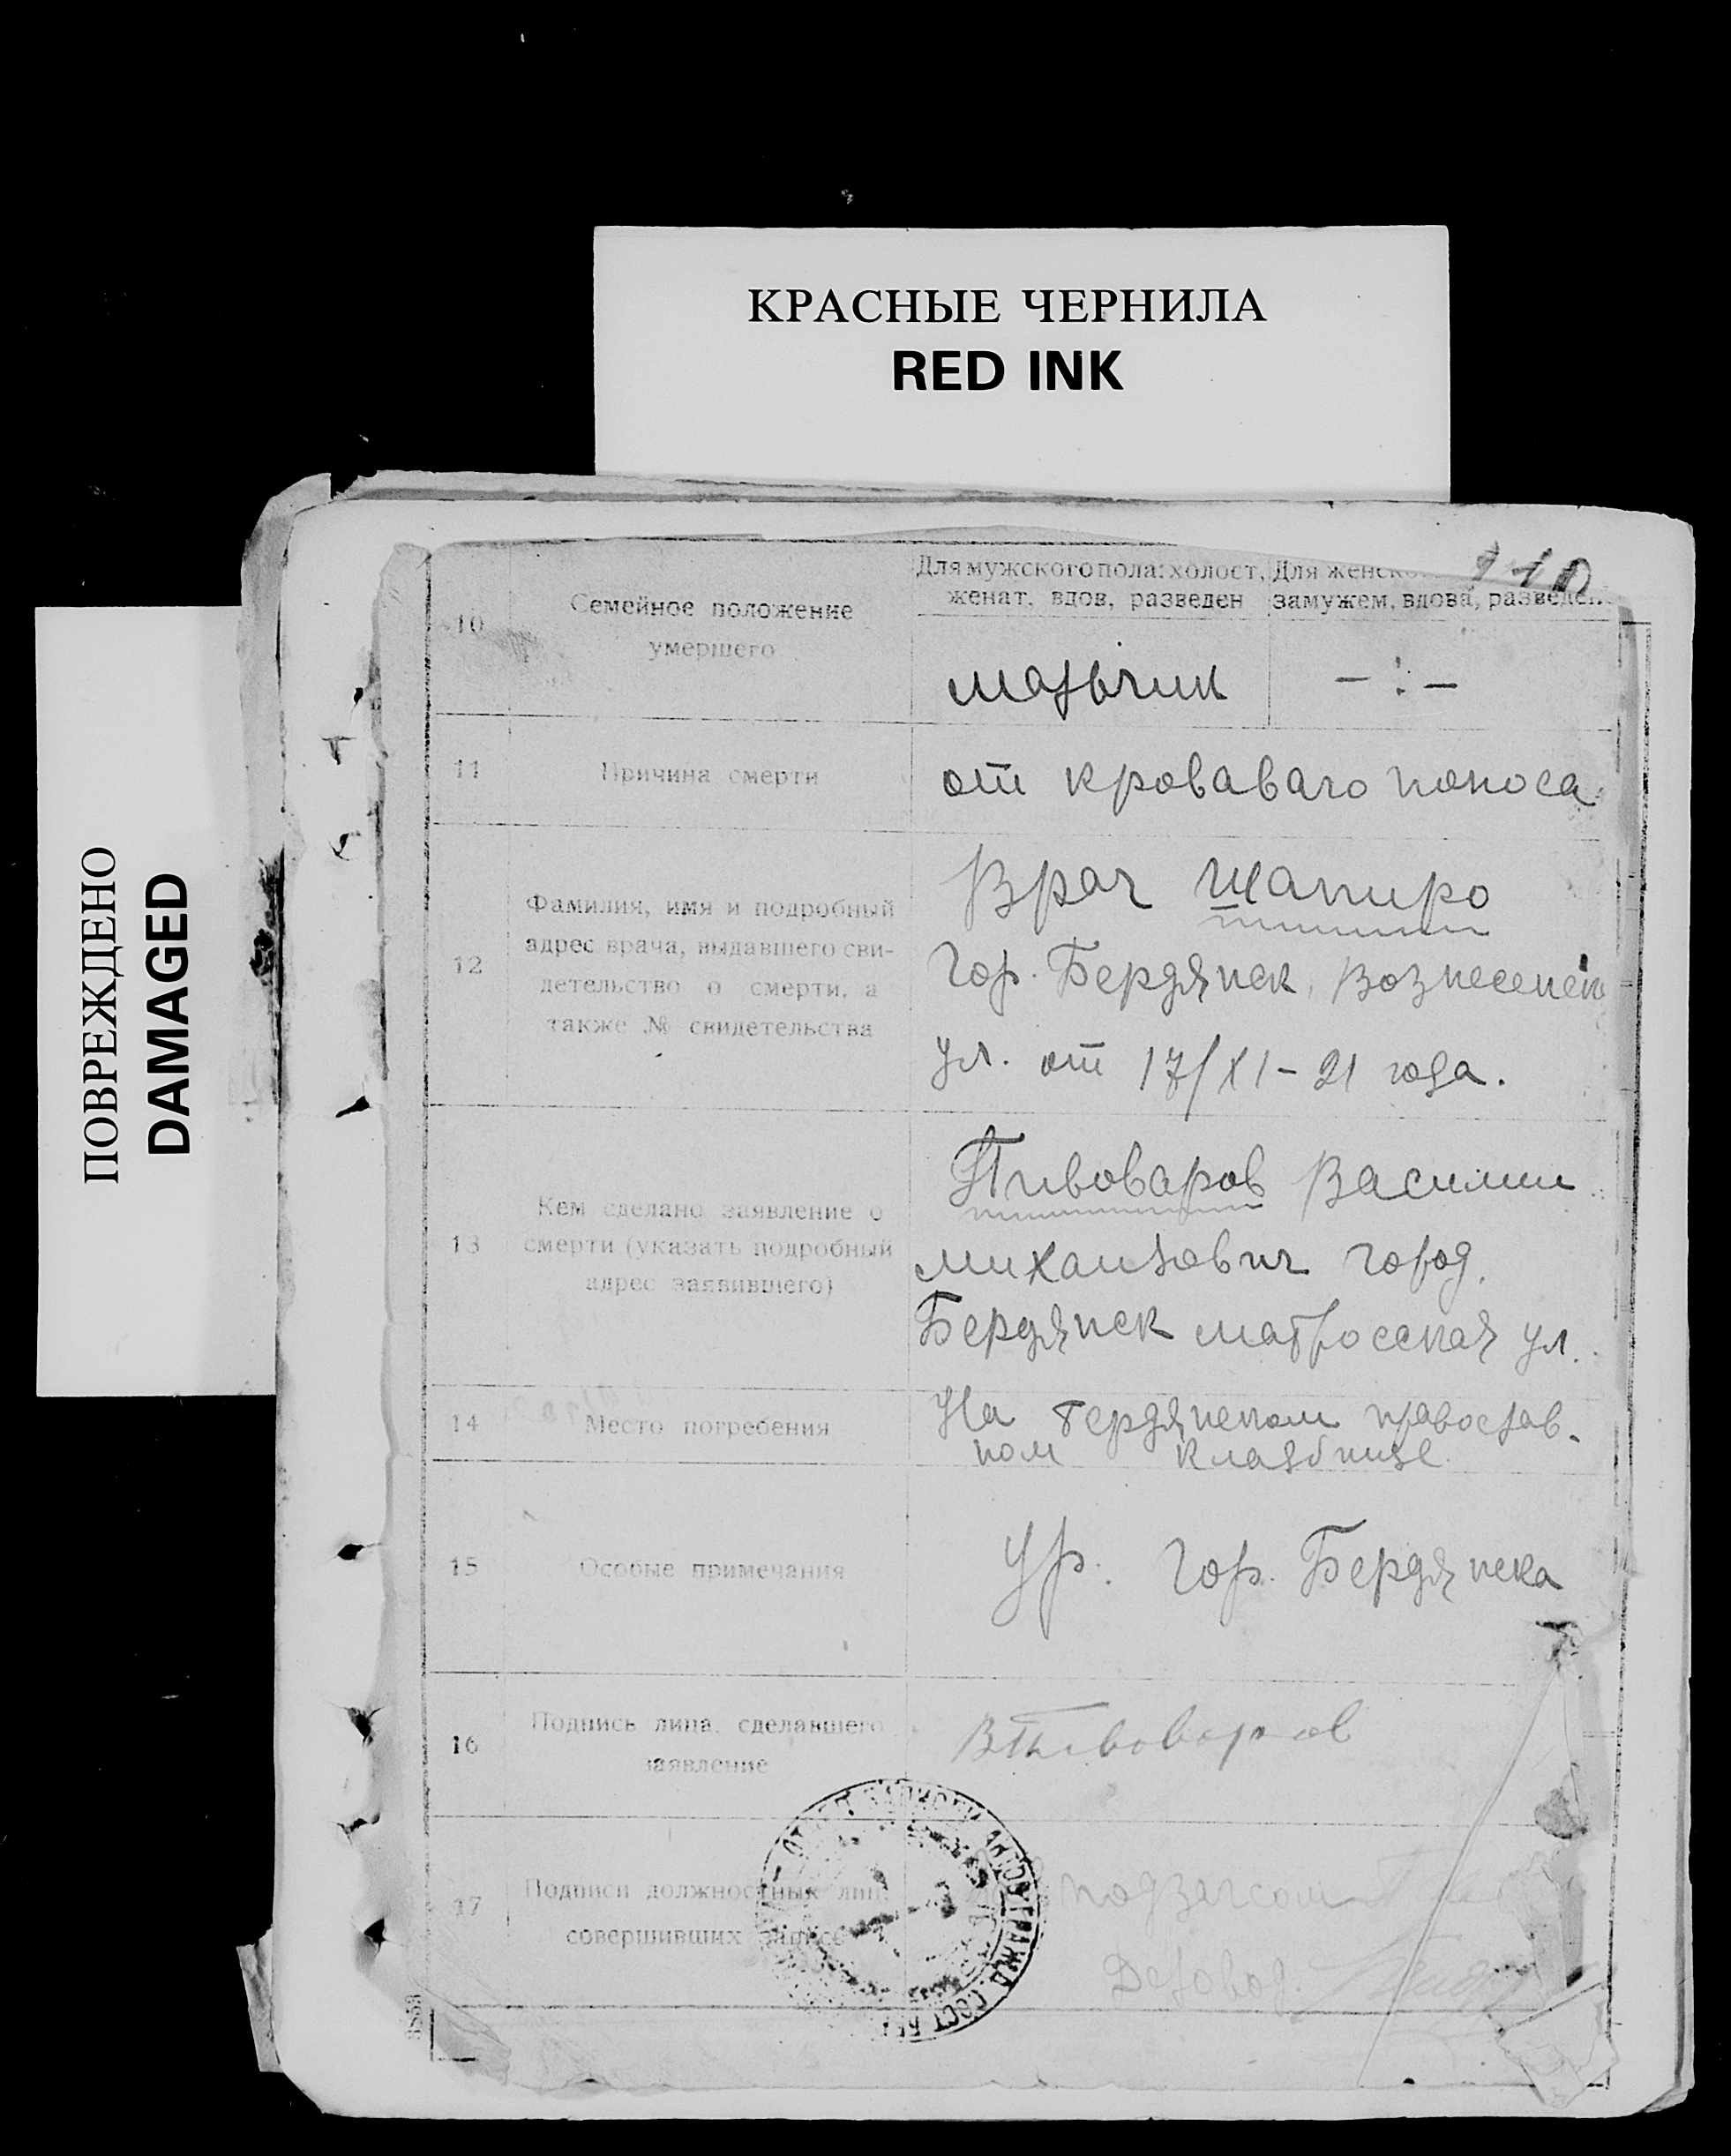 КРАСНЫЕ ЧЕРНИЛА
RED INK
ПОВРЕЖДЕНО
DAMAGED
110
10
Семейное положение
умершего
Для мужского пола: холост,
женат, вдов, разведен
Для женско
замужем, вдова, разведен
мальчик
– : –
11
Причина смерти
от кроваваго поноса
12
Фамилия, имя и подробный
адрес врача, выдавшего сви-
детельство о смерти, а
также № свидетельства
Врач Шапиро
Гор. Бердянск, Вознесенск
ул. от 17/XI – 21 года.
13
Кем сделано заявление о
смерти (указать подробный
адрес заявившего)
Пивоваров Василии
михаилович город.
Бердянск матросская ул.
14
Место погребения
На бердянском православ-
ном кладбище
15
Особые примечания
Ур. гор. Бердянска
16
Подпись лица, сделавшего
заявление
ВПивоваров
17
Подписи должностных лиц
совершивших запись
подзагсом
Делопр.